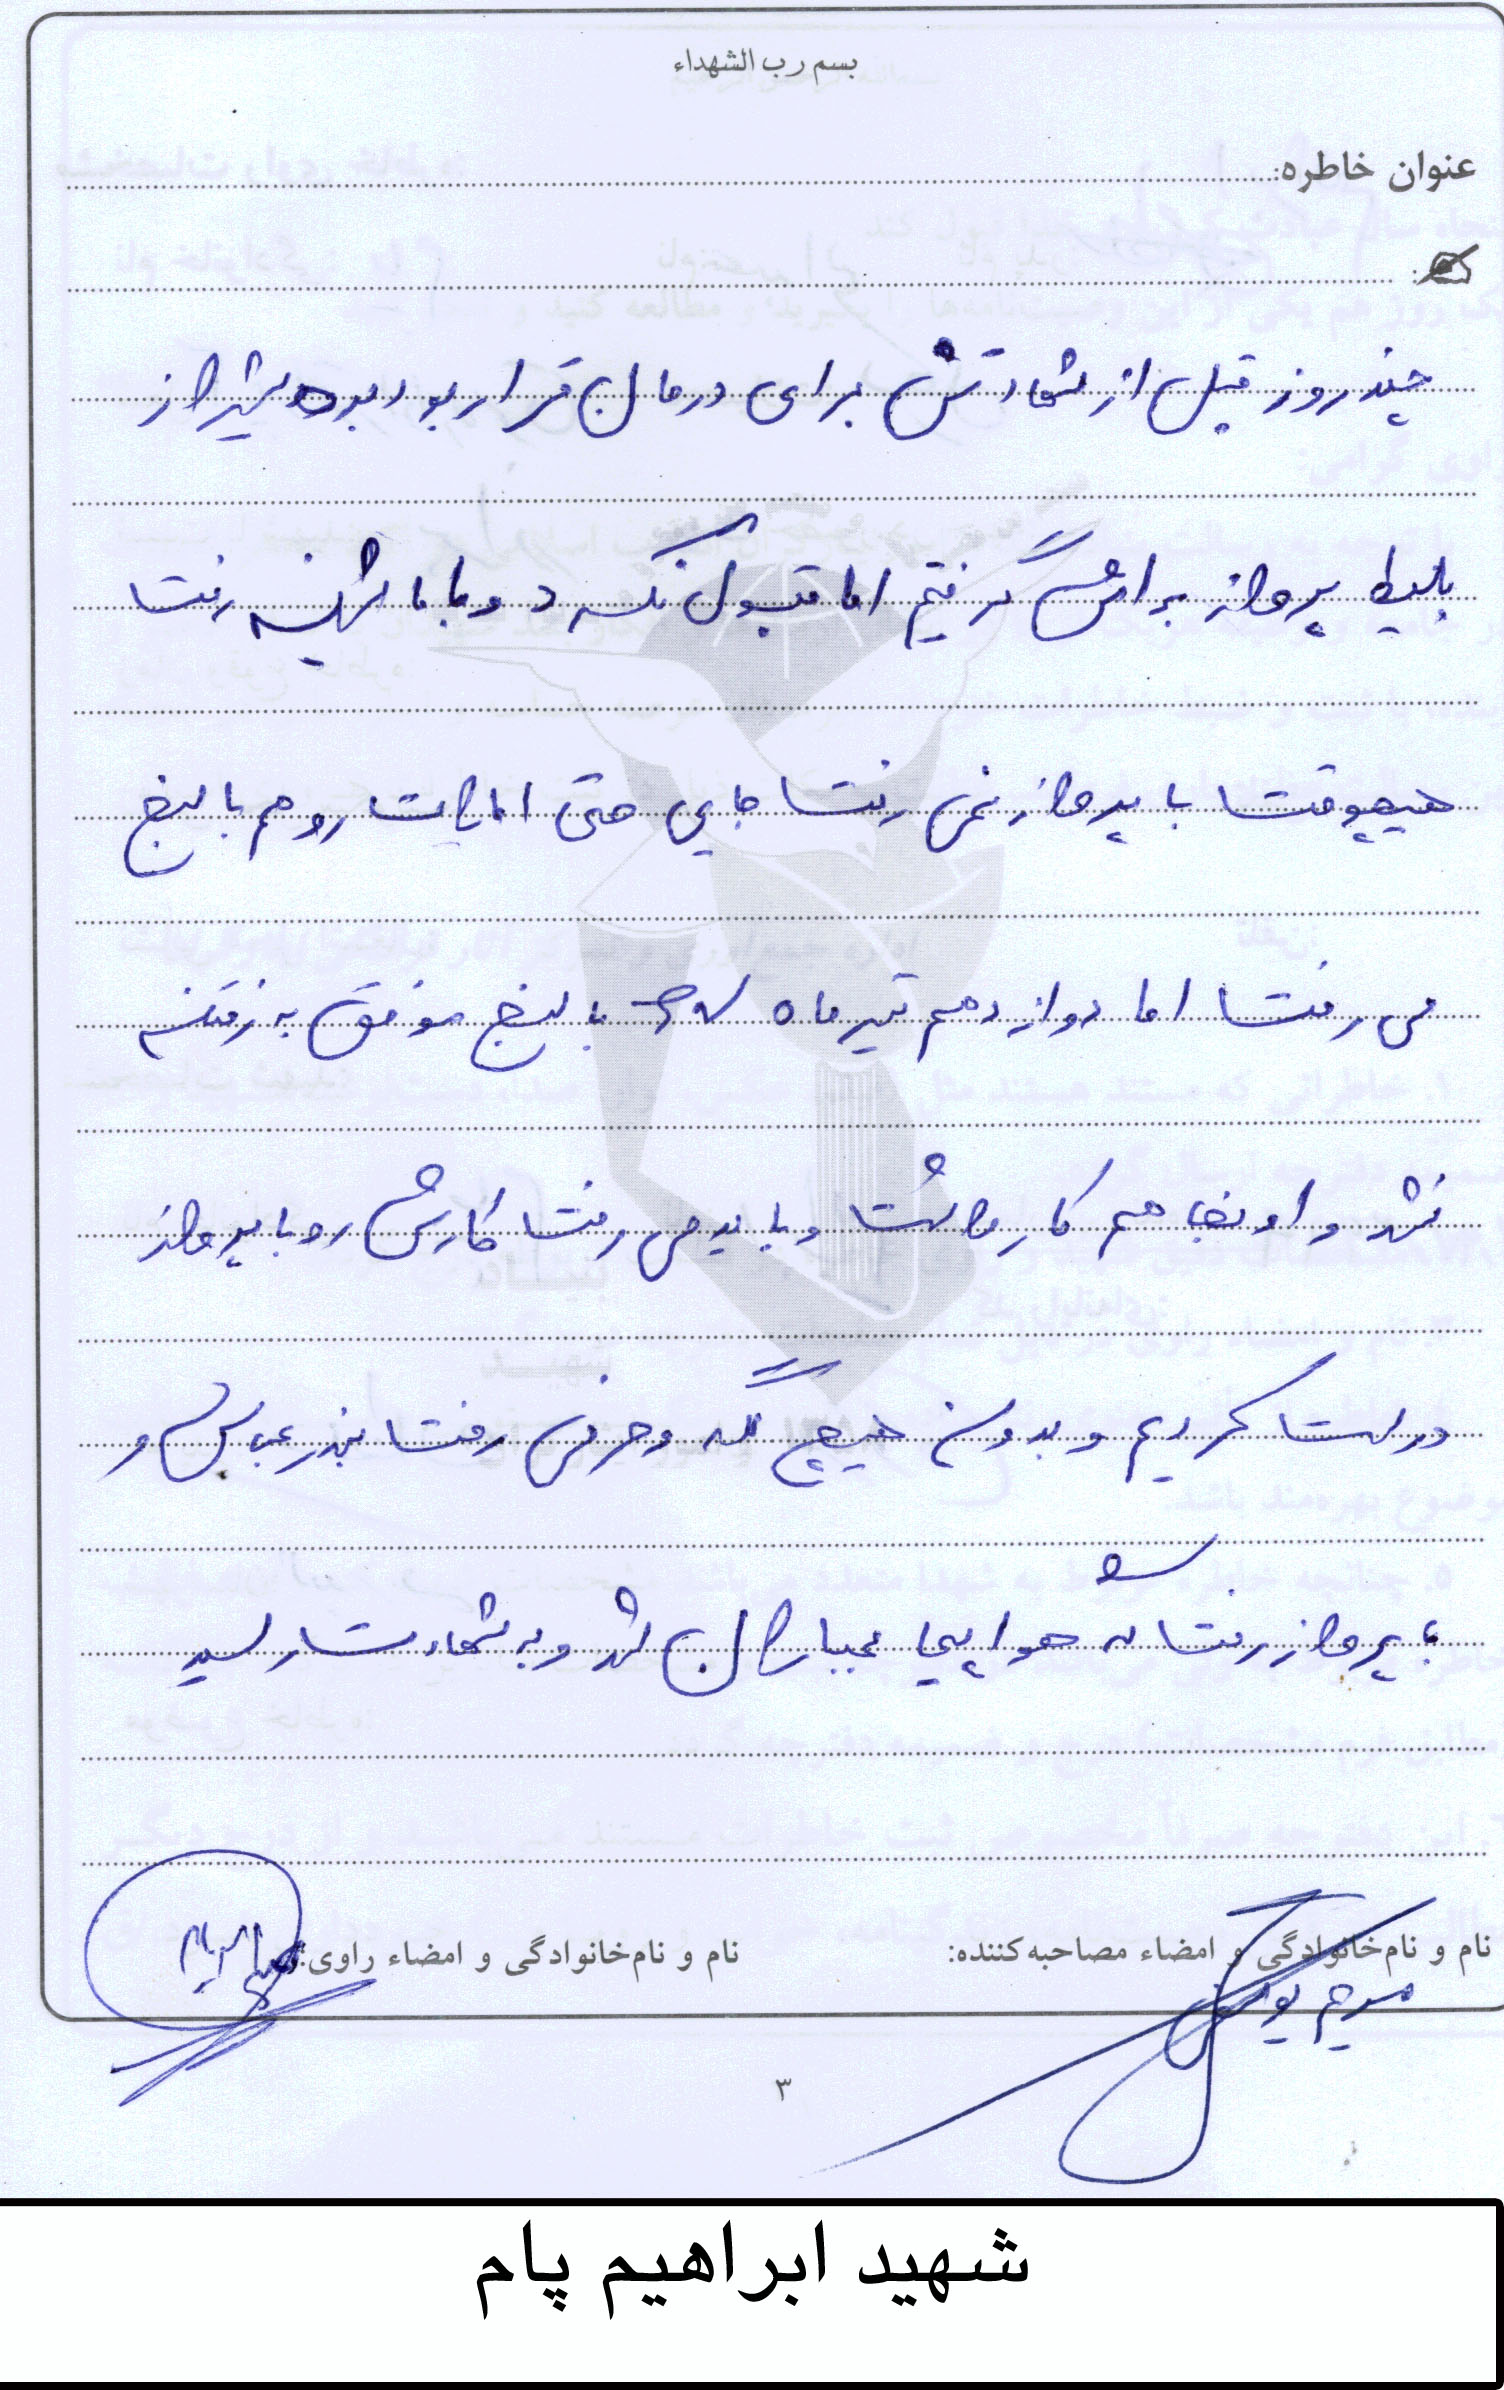 بسم رب الشهداء
عنوان خاطره:
چند روز قبل از شهادتش برای درمان قرار بود بره شیراز
بلیط پرواز براش گرفتیم اما قبول نکرد و با ماشین رفت
هیچوقت با پرواز نمی رفت جایی حتی امارات رو هم با لنج
می رفت اما دوازدهم تیر ماه ۶۷ با لنج موفق به رفتن
نشد و اونجا هم کار داشت و باید می رفت کارش رو با پرواز
درست کردیم و بدون هیچ گله و حرفی رفت بندرعباس و
با پرواز رفت که هواپیما بمباران شد و به شهادت رسید
نام و نام‌خانوادگی و امضاء مصاحبه‌کننده:
نام و نام‌خانوادگی و امضاء راوی:
مریم
۳
شهید ابراهیم پام